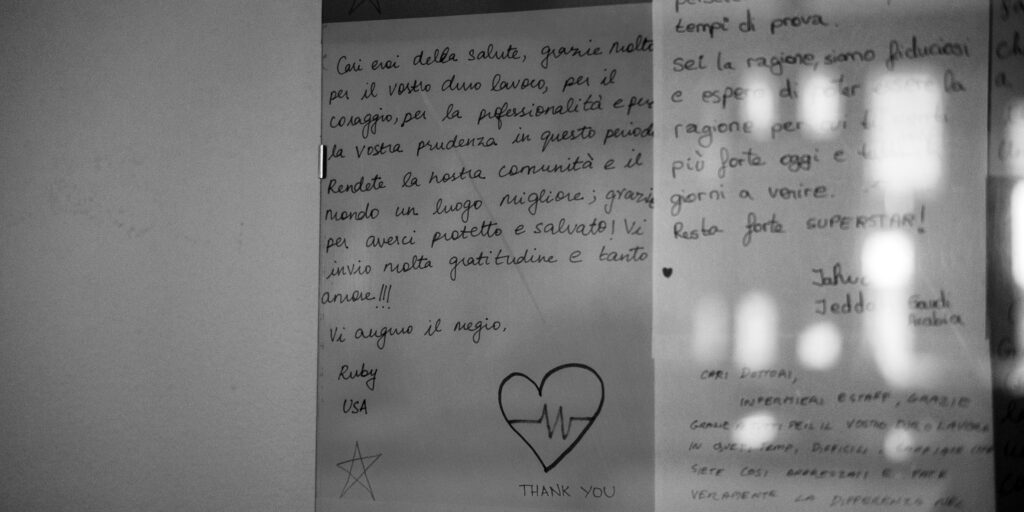 Cari eroi della salute, grazie molte
per il vostro duro lavoro, per il
coraggio, per la professionalità e per
la vostra prudenza in questo periodo
Rendete la nostra comunità e il
mondo un luogo migliore; grazie
per averci protetto e salvato! Vi
invio molta gratitudine e tanto
amore!!!
Vi auguro il megio,
Ruby
USA
THANK YOU
tempi di prova.
sei la ragione, siamo fiduciosi
e espero di poter essere la
ragione per cui ti
più forte oggi e
giorni a venire.
Resta forte SUPERSTAR!
Saudi
Arabia
CARI DOTTORI,
INFERMIERI E STAFF, GRAZIE
GRAZIE A TUTTI PER IL VOSTRO DURO LAVORO
IN QUESTI TEMPI DIFFICILI.
SIETE COSI APPREZZATI E FATE
VERAMENTE LA DIFFERENZA NEL